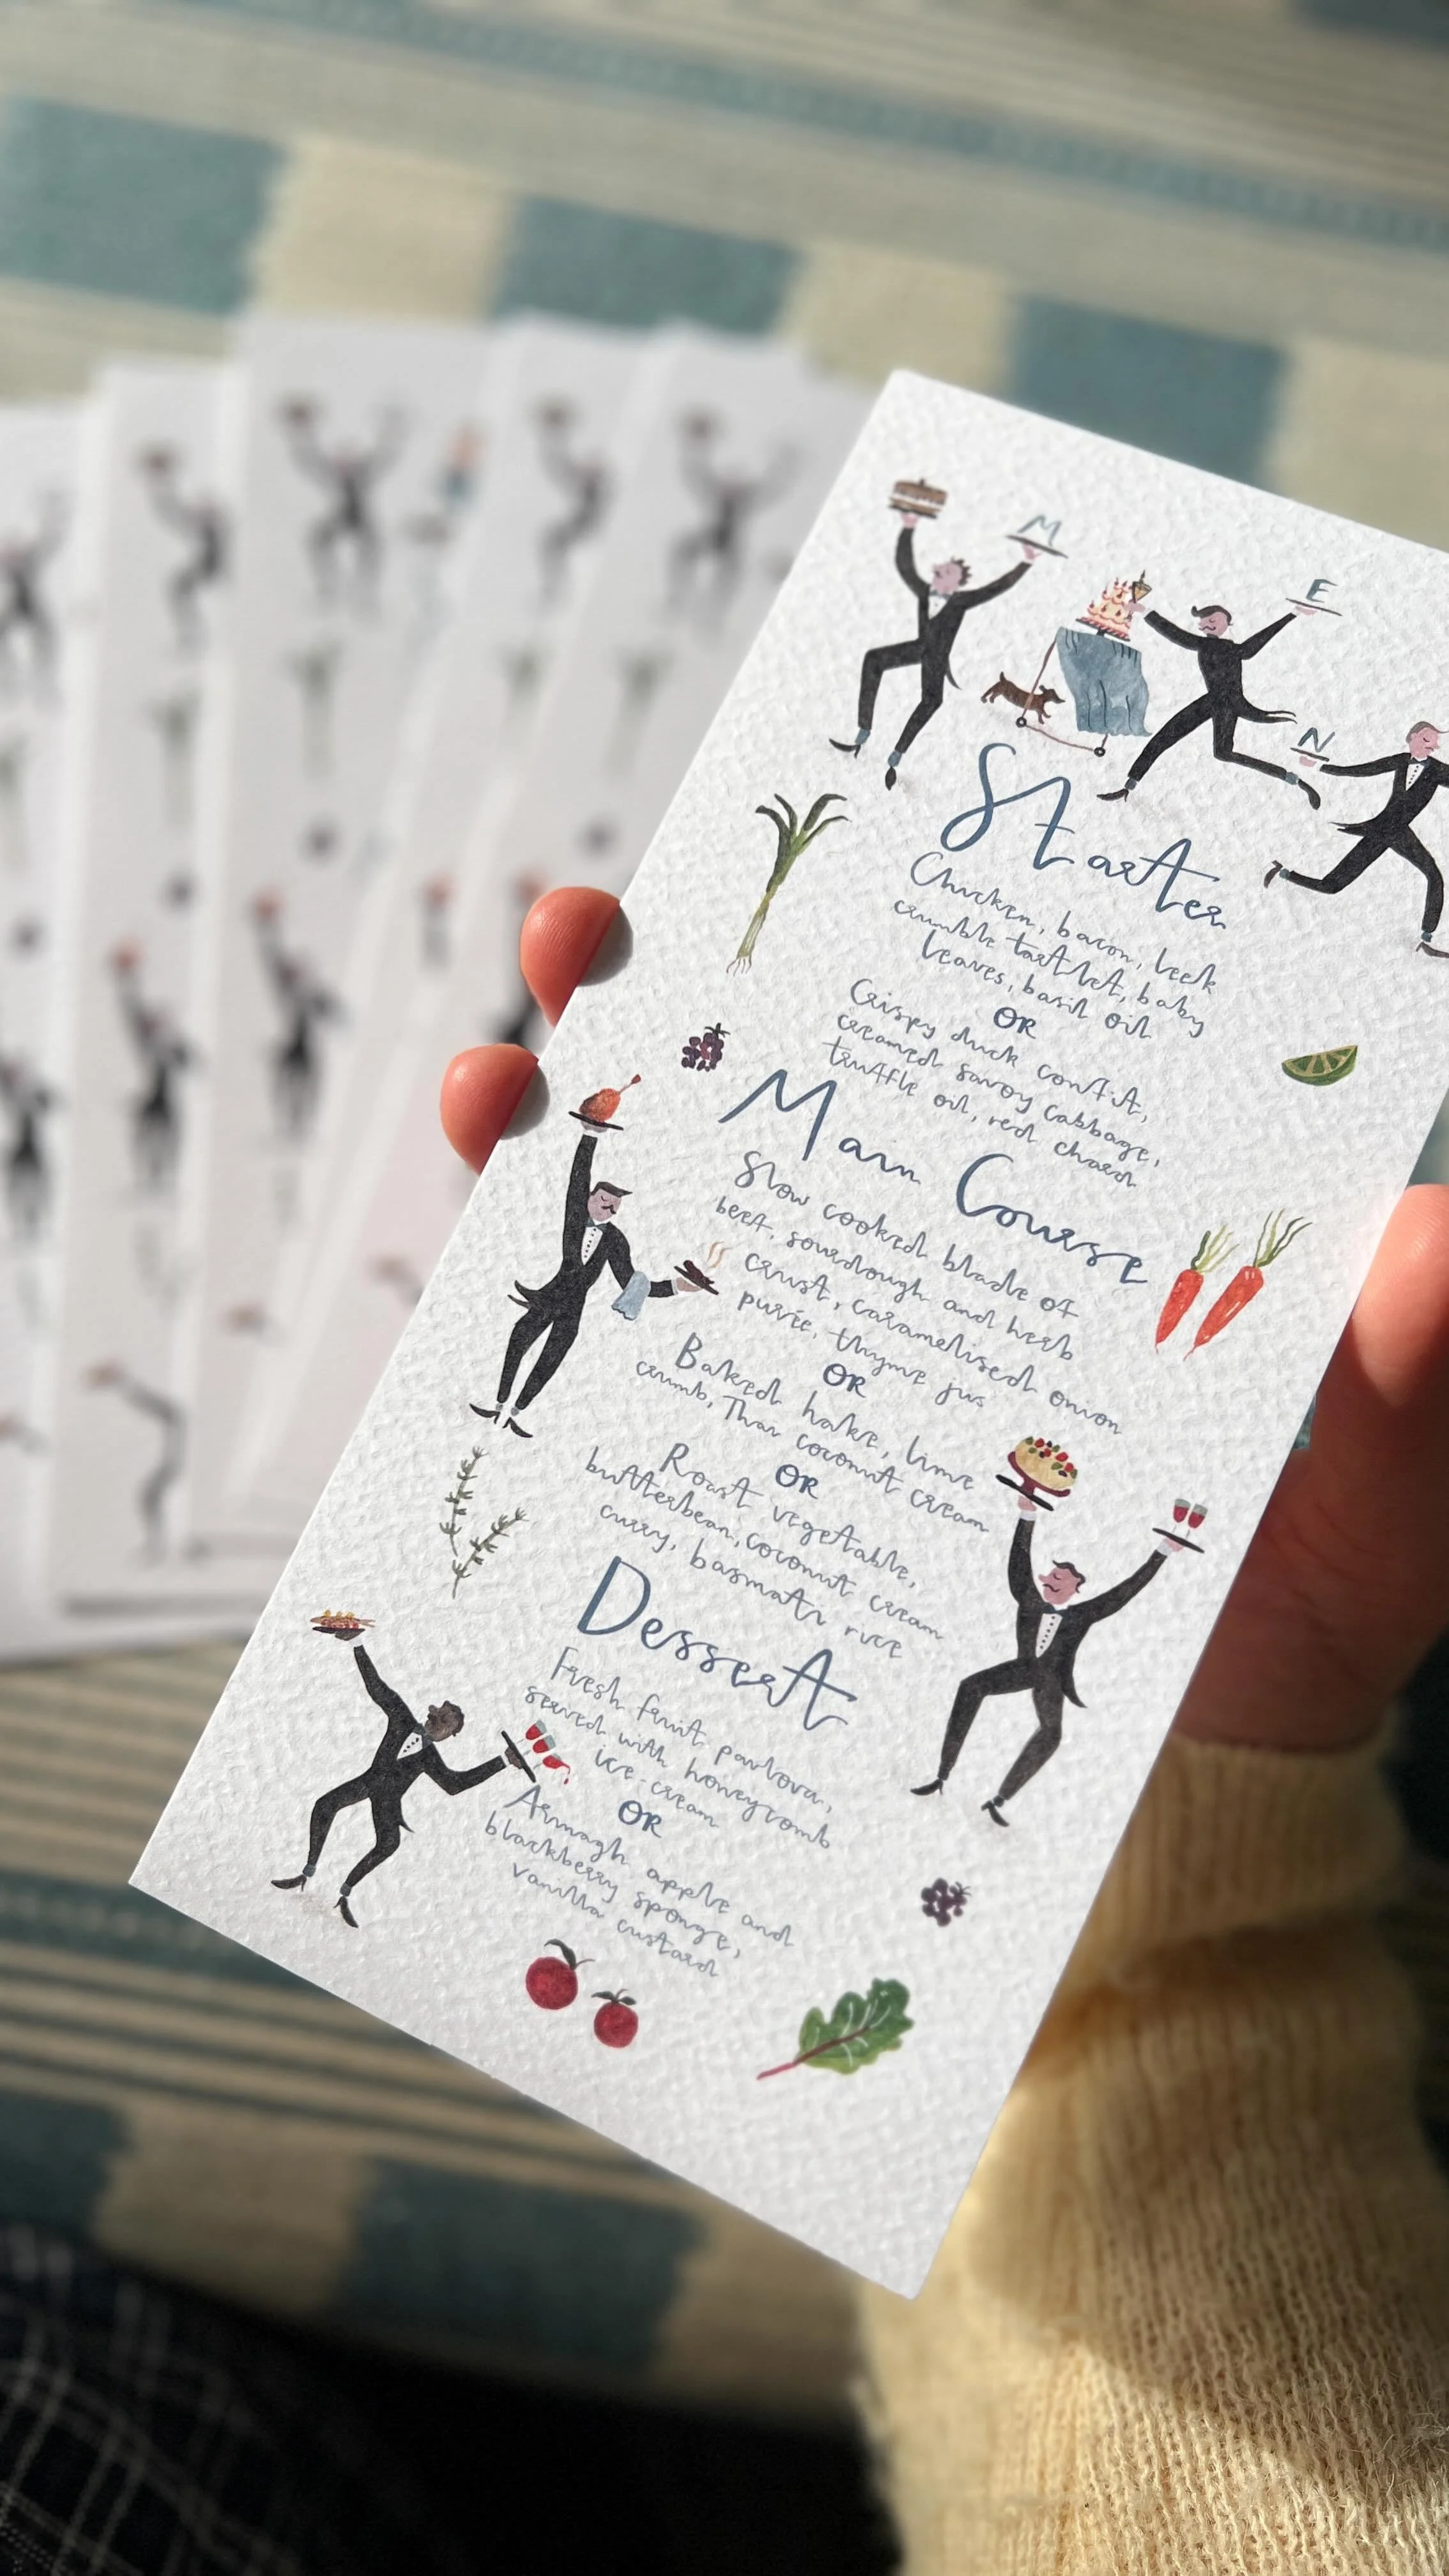 M
E
N
Starter
Chicken, bacon, leek
crumble tartlet, baby
leaves, basil oil
OR
Crispy duck confit,
creamed savoy cabbage,
truffle oil, red chard
Main Course
Slow cooked blade of
beef, sourdough and herb
crust, caramelised onion
purée, thyme jus
OR
Baked hake, lime
crumb, Thai coconut cream
OR
Roast vegetable,
butterbean, coconut cream
curry, basmati rice
Dessert
Fresh fruit pavlova,
served with honeycomb
ice-cream
OR
Armagh apple and
blackberry sponge,
vanilla custard